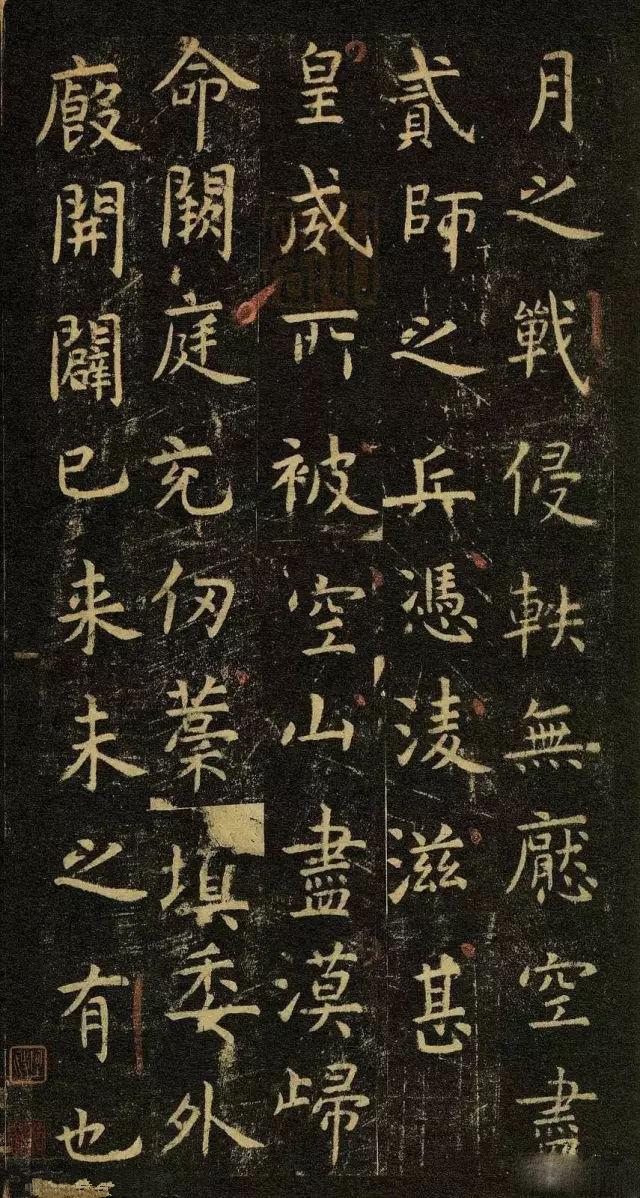 月之戰侵軼無懕空盡
貳師之兵憑淩滋甚
皇威所被空山盡漠歸
命闕庭充仞藁填委外
廏開闢已来未之有也